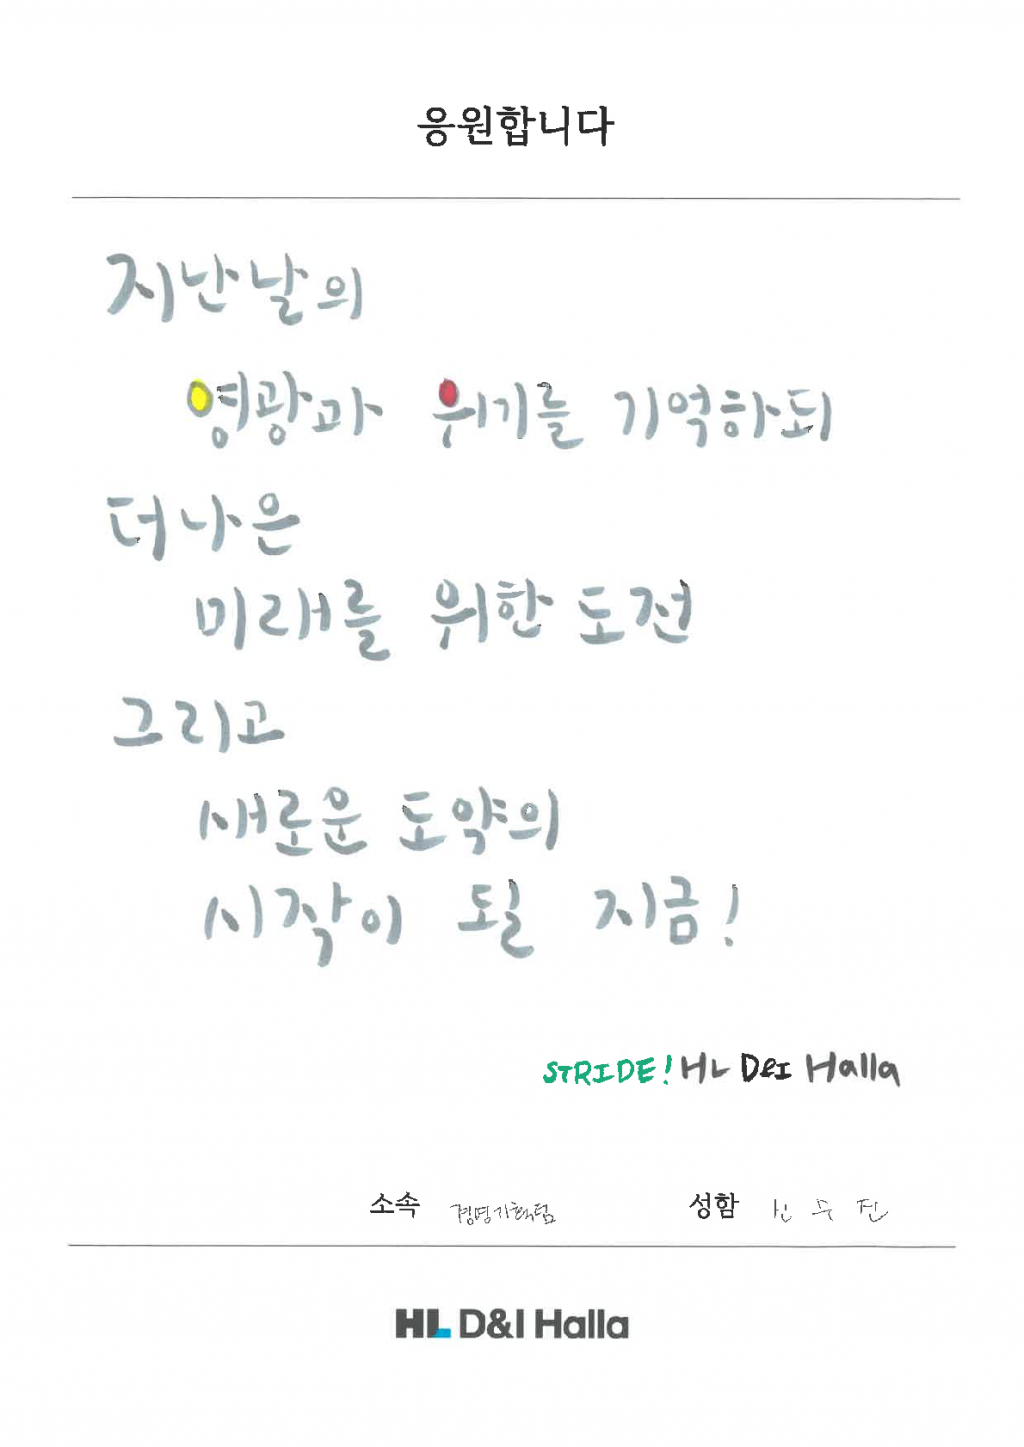 응원합니다
지난날의
영광과 위기를 기억하되
더 나은
미래를 위한 도전
그리고
새로운 도약의
시작이 될 지금!
STRIDE! HL D&I Halla
소속 경영기획팀 성함 신우진
HL D&I Halla